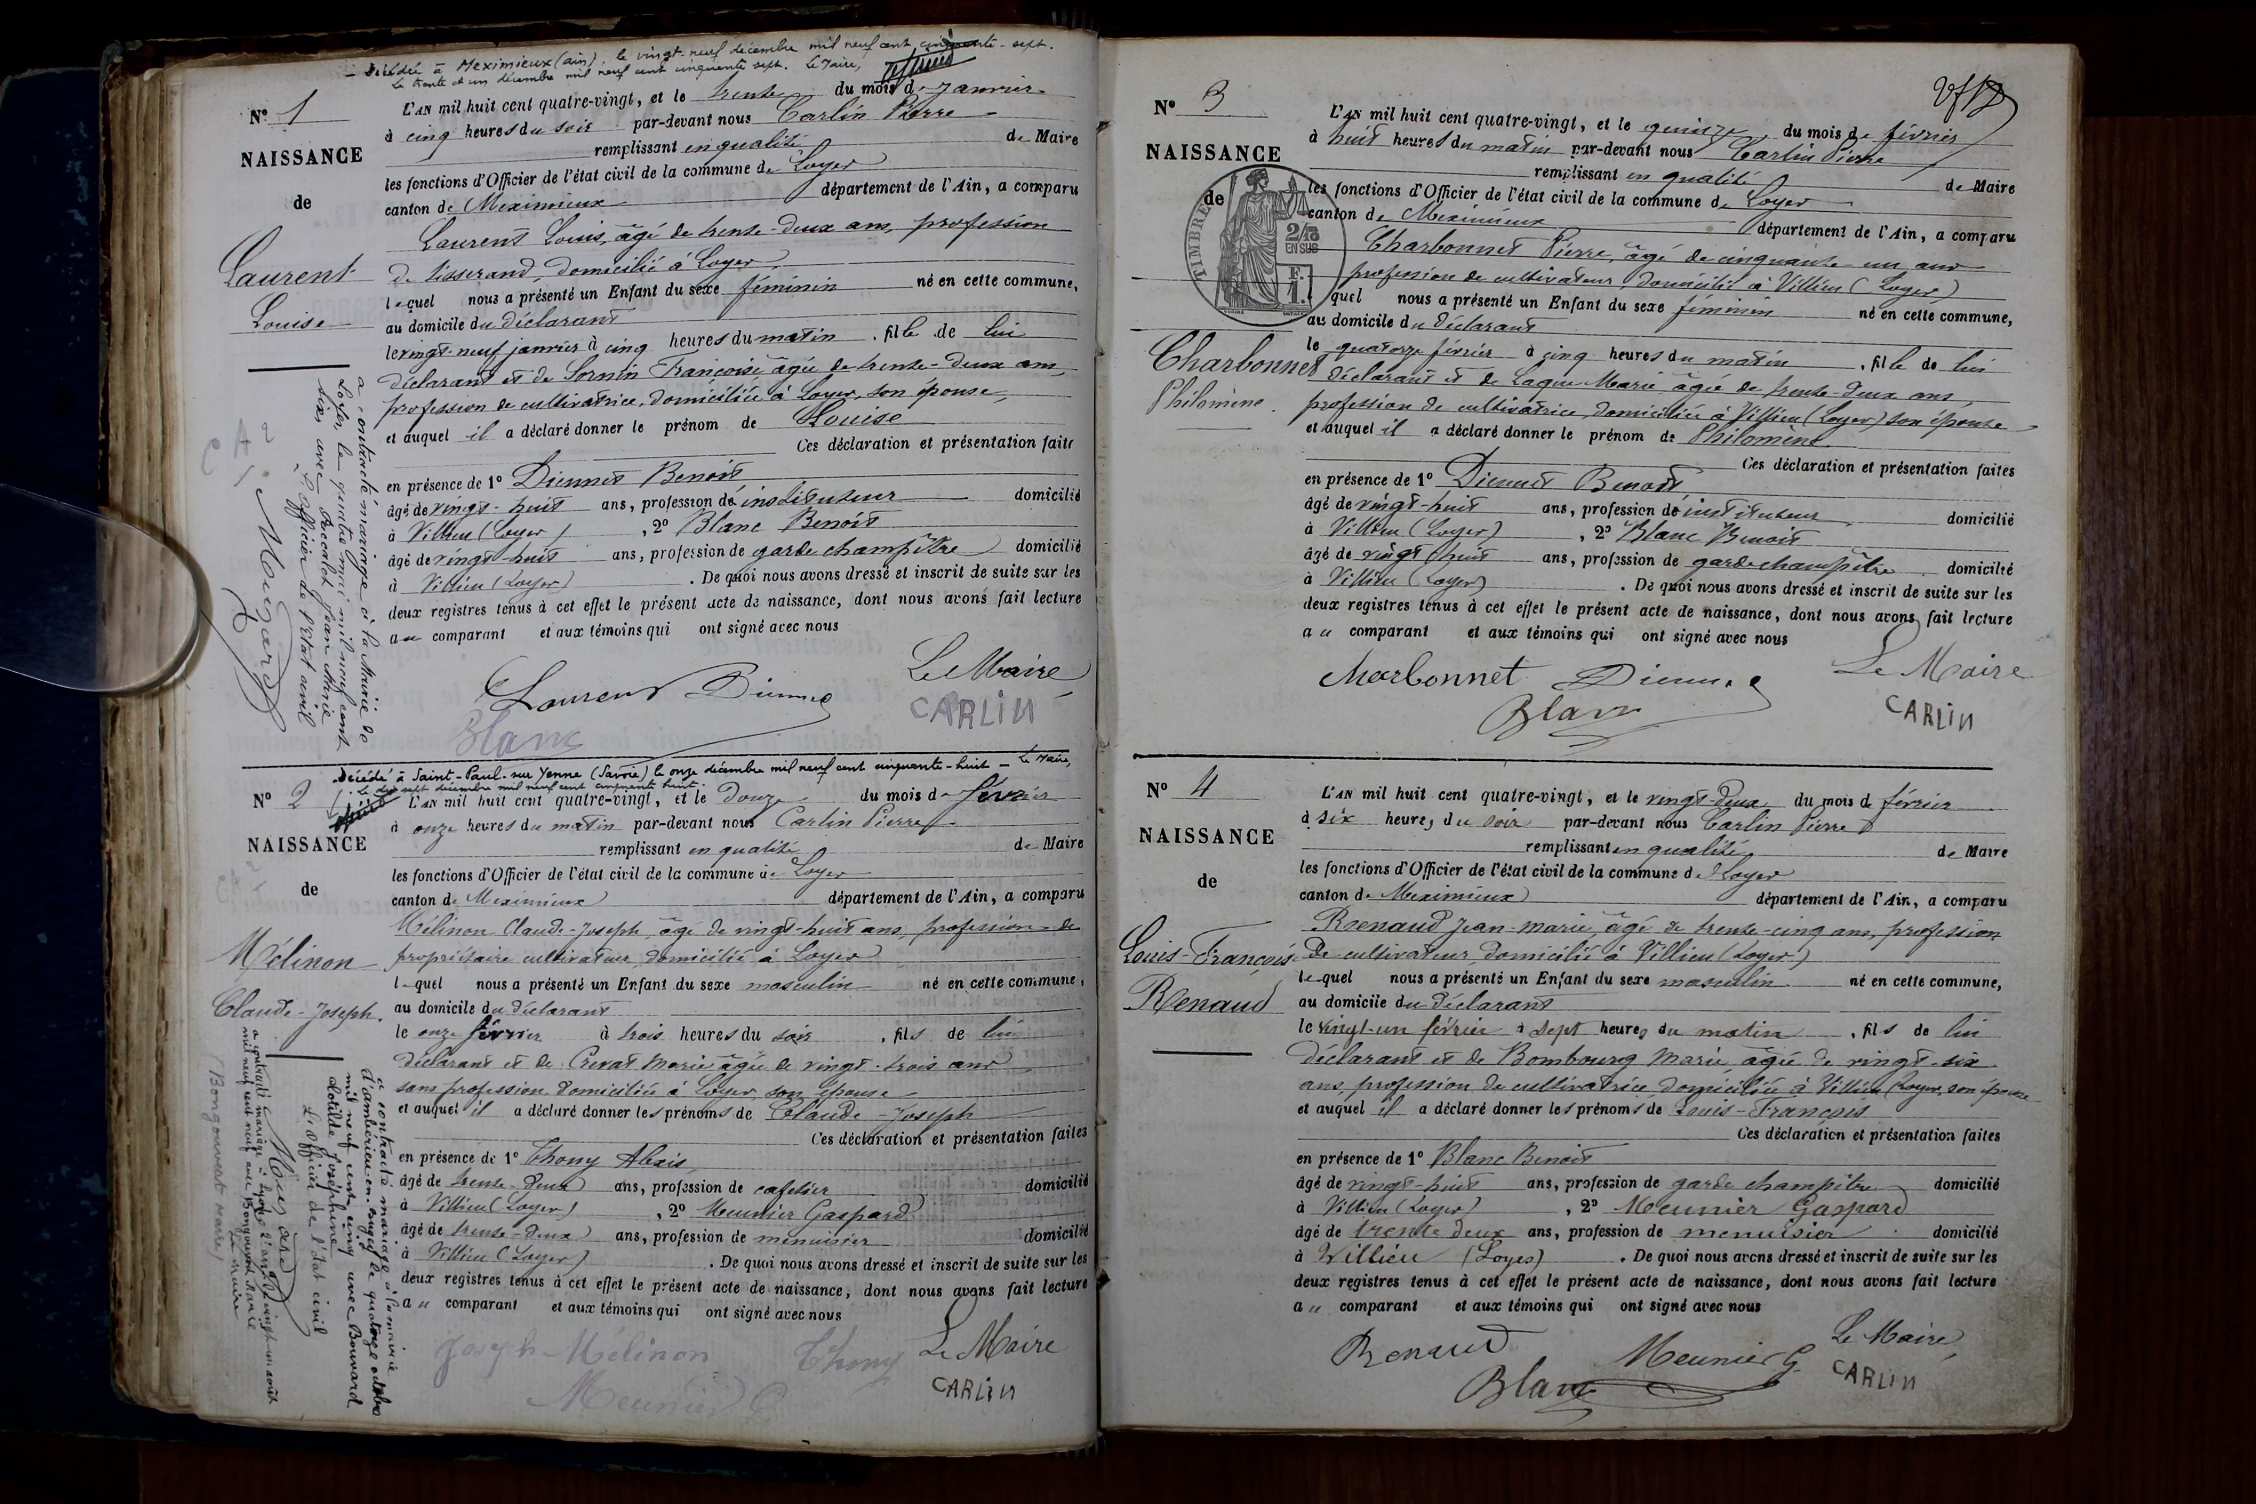 Décédée à Meximieux (Ain), le vingt-neuf décembre mil neuf cent cinquante-sept.
Le trente et un décembre mil neuf cent cinquante sept. Le Maire,
N° 1
NAISSANCE
de
Laurent
Louise
L'AN mil huit cent quatre-vingt, et le trente du mois de Janvier
à cinq heures du soir par-devant nous Carlin Pierre
remplissant en qualité de Maire
les fonctions d'Officier de l'état civil de la commune de Loyes
canton de Meximieux département de l'Ain, a comparu
Laurent Louis, âgé de trente-deux ans, profession
de tisserand, domicilié à Loyes
lequel nous a présenté un Enfant du sexe féminin né en cette commune,
au domicile du déclarant
le vingt-neuf janvier à cinq heures du matin, fille de lui
déclarant et de Sornin Françoise âgée de trente-deux ans,
profession de cultivatrice, domiciliée à Loyes, son épouse,
et auquel il a déclaré donner le prénom de Louise
Ces déclaration et présentation faites
en présence de 1° Diennet Benoit
âgé de vingt-huit ans, profession de instituteur domicilié
à Villieu (Loyes), 2° Blanc Benoit
âgé de vingt-huit ans, profession de garde champêtre domicilié
à Villieu (Loyes). De quoi nous avons dressé et inscrit de suite sur les
deux registres tenus à cet effet le présent acte de naissance, dont nous avons fait lecture
au comparant et aux témoins qui ont signé avec nous
Laurent Diennet Le Maire
Blanc CARLIN
a contracté mariage à la Mairie de
Loyes le quatre mai mil neuf cent
six avec Jean Marie
L'officier de l'état civil
Décédé à Saint-Paul-sur Yenne (Savoie) le onze décembre mil neuf cent cinquante-huit - Le Maire,
Le dix sept décembre mil neuf cent cinquante huit.
N° 2
NAISSANCE
de
Mélinon
Claude-Joseph.
L'AN mil huit cent quatre-vingt, et le douze du mois de février
à onze heures du matin par-devant nous Carlin Pierre
remplissant en qualité de Maire
les fonctions d'Officier de l'état civil de la commune de Loyes
canton de Meximieux département de l'Ain, a comparu
Mélinon Claude-Joseph, âgé de vingt-huit ans, profession de
propriétaire cultivateur, domicilié à Loyes
lequel nous a présenté un Enfant du sexe masculin né en cette commune,
au domicile du déclarant
le onze février à trois heures du soir, fils de lui
déclarant et de Marie âgée de vingt-trois ans
sans profession, domiciliée à Loyes, son épouse
et auquel il a déclaré donner les prénoms de Claude-Joseph
Ces déclaration et présentation faites
en présence de 1° Thony Alexis
âgé de trente-deux ans, profession de cafetier domicilié
à Villieu (Loyes), 2° Meunier Gaspard
âgé de trente-deux ans, profession de menuisier domicilié
à Villieu (Loyes). De quoi nous avons dressé et inscrit de suite sur les
deux registres tenus à cet effet le présent acte de naissance, dont nous avons fait lecture
au comparant et aux témoins qui ont signé avec nous
Joseph Mélinon Thony Le Maire
Meunier G CARLIN
a contracté mariage à la mairie
d'Ambérieu-en-Bugey le quatorze octobre
mil neuf cent cinq avec Bouvard
Clotilde Joséphine
L'officier de l'état civil
a contracté mariage à Lyon 2e arr. le vingt-un août
mil neuf cent neuf avec Bongouvert Marie
Le Maire
(Bongouvert Marie)
N° 3
NAISSANCE
de
TIMBRE
2/10
EN SUS
F.
1.
Charbonnet
Philomène.
L'AN mil huit cent quatre-vingt, et le quinze du mois de février
à huit heures du matin par-devant nous Carlin Pierre
remplissant en qualité de Maire
les fonctions d'Officier de l'état civil de la commune de Loyes
canton de Meximieux département de l'Ain, a comparu
Charbonnet Pierre, âgé de cinquante un ans
profession de cultivateur, domicilié à Villieu (Loyes)
quel nous a présenté un Enfant du sexe féminin né en cette commune,
au domicile du déclarant
le quatorze février à cinq heures du matin, fille de lui
déclarant et de Marie âgée de trente-deux ans,
profession de cultivatrice, domiciliée à Villieu (Loyes) son épouse
et auquel il a déclaré donner le prénom de Philomène
Ces déclaration et présentation faites
en présence de 1° Diennet Benoit
âgé de vingt-huit ans, profession de instituteur domicilié
à Villieu (Loyes), 2° Blanc Benoit
âgé de vingt huit ans, profession de garde champêtre domicilié
à Villieu (Loyes). De quoi nous avons dressé et inscrit de suite sur les
deux registres tenus à cet effet le présent acte de naissance, dont nous avons fait lecture
au comparant et aux témoins qui ont signé avec nous
Charbonnet Diennet Le Maire
Blanc CARLIN
N° 4
NAISSANCE
de
Louis-François
Renaud
L'AN mil huit cent quatre-vingt, et le vingt-deux du mois de février
à six heures du soir par-devant nous Carlin Pierre
remplissant en qualité de Maire
les fonctions d'Officier de l'état civil de la commune de Loyes
canton de Meximieux département de l'Ain, a comparu
Renaud Jean-marie, âgé de trente-cinq ans, profession
de cultivateur, domicilié à Villieu (Loyes)
lequel nous a présenté un Enfant du sexe masculin né en cette commune,
au domicile du déclarant
le vingt-un février à sept heures du matin, fils de lui
déclarant et de Bombourg Marie, âgée de vingt-six
ans, profession de cultivatrice, domiciliée à Villieu (Loyes), son épouse
et auquel il a déclaré donner les prénoms de Louis-François
Ces déclaration et présentation faites
en présence de 1° Blanc Benoit
âgé de vingt-huit ans, profession de garde champêtre domicilié
à Villieu (Loyes), 2° Meunier Gaspard
âgé de trente deux ans, profession de menuisier domicilié
à Villieu (Loyes). De quoi nous avons dressé et inscrit de suite sur les
deux registres tenus à cet effet le présent acte de naissance, dont nous avons fait lecture
au comparant et aux témoins qui ont signé avec nous
Renaud Meunier G. Le Maire,
Blanc CARLIN